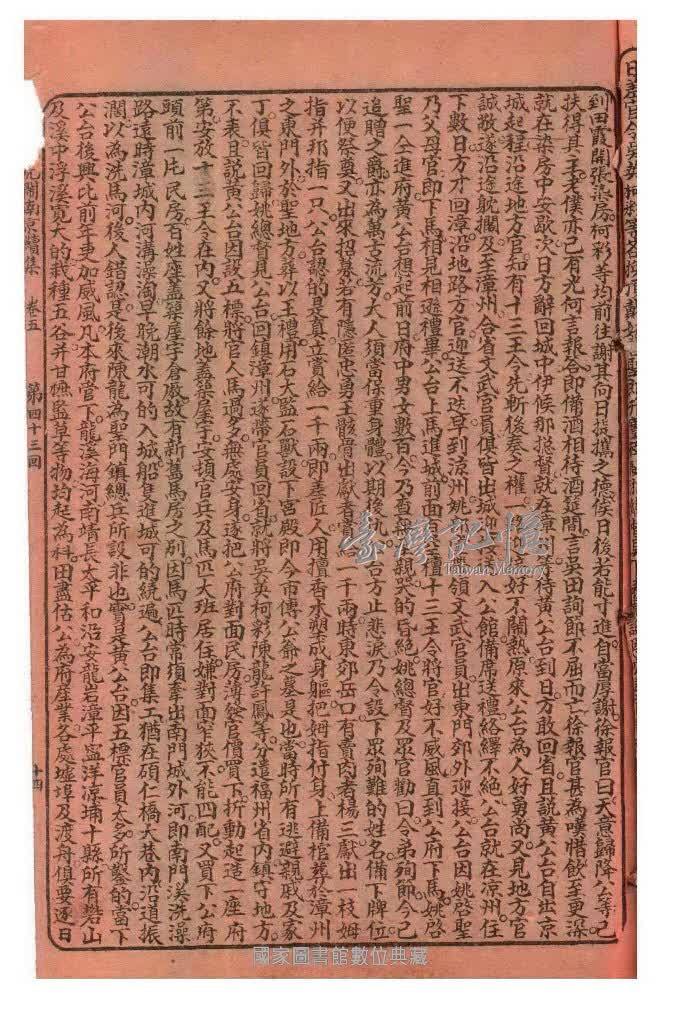 到田霞開張染房柯彩等均前往謝其向日提攜之德候日後若能寸進自當厚謝徐報官曰天意歸降公等已
扶得其主老僕亦已有光何言報答即備酒相待酒筵間言吳田詢節不屈而亡徐報官甚為嘆惜飲至更深
就在染房中安歇次日方辭回城中伊候那總督就在漳州等待黃公台到日方敢回省且說黃公台自出京
城起程沿途地方官知有十三王令先斬後奏之權 好不鬧熱原來公台為人好勇高又見地方官
誠敬遂沿途躭擱及至漳州合省文武官員俱皆出城迎接 入公館備席送禮絡繹不絕公台就在涼州住
下數日方才回漳沿地路方官迎送不迭早到涼州姚 領文武官員出東門郊外迎接公台因姚啓聖
乃父母官即下馬相見相遜禮畢公台上馬進城前面 擅十三王令將官好不威風直到公府下馬姚啓
聖一仝進府黃公台想起前日府中男女數百今乃杳 親哭的昏絕姚總督及眾官勸曰令弟殉節今已
追贈之爵亦為萬古流芳大人須當保重身體以期後九 台方止悲淚乃令設下眾殉難的姓名備下牌位
以便祭奠又出來招募若有隱匿忠勇王骸骨出獻者賞 一千兩時東郊岳口有賣肉者楊三獻出一枝姆
指并那指一只公台認的是真立賞給一千兩即差匠人用擅香水塑成身軀把姆指付身上備棺葬於漳州
之東門外於聖地方葬以王禮用石大監石獸設下宮殿即今市傳公侖之墓是也當時所有逃避親戚及家
丁俱皆回歸姚總督見公台回鎮漳州遂帶官員回省就將吳英柯彩陳龍許鳳等分遣福州省內鎮守地方
不表且說黃公台因設五標將官人馬過多無處安身遂把公府對面民房溥筮官價買下折動起造一座府
第安放十三王令在內又將餘地蓋築屋宇安頓官兵及馬匹大班居住嫌對面窄狹不能四配又買下公府
頭前一片民房百姓座蓋築屋宇倉廒故有新舊馬房之別因馬匹時常須牽出南門城外河即南門溪洗澡
路遠時漳城内河溝深淘早晚潮水可的入城船隻進城可的繞遍公台即集工猶在碩仁橋大巷內沿道振
濶以為洗馬河後人錯認是後來陳龍為聖門鎮總兵所設非也實是黃公台因五標官員太多所鑿的當下
公台後興比前年更加威風凡本府管下龍溪海河南靖長太平和沿安龍岩漳平寧洋凉埔十縣所有礬山
及溪中浮溪寬大的栽種五谷并甘蔗藍草等物均起為科田盡估公為府産業各處墟埠及渡舟俱要逐日
閙南京續集 卷五 第四十三回 十四
臺灣記憶
Taiwan Memory
國家圖書館數位典藏